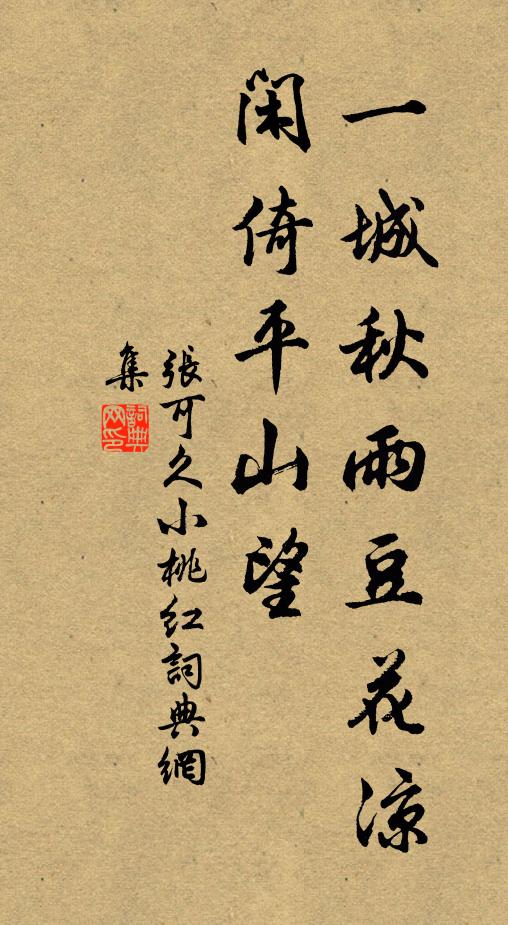 一城秋雨豆花凉
闲倚平山望
張可久小桃红詞典網
集
詞典网印